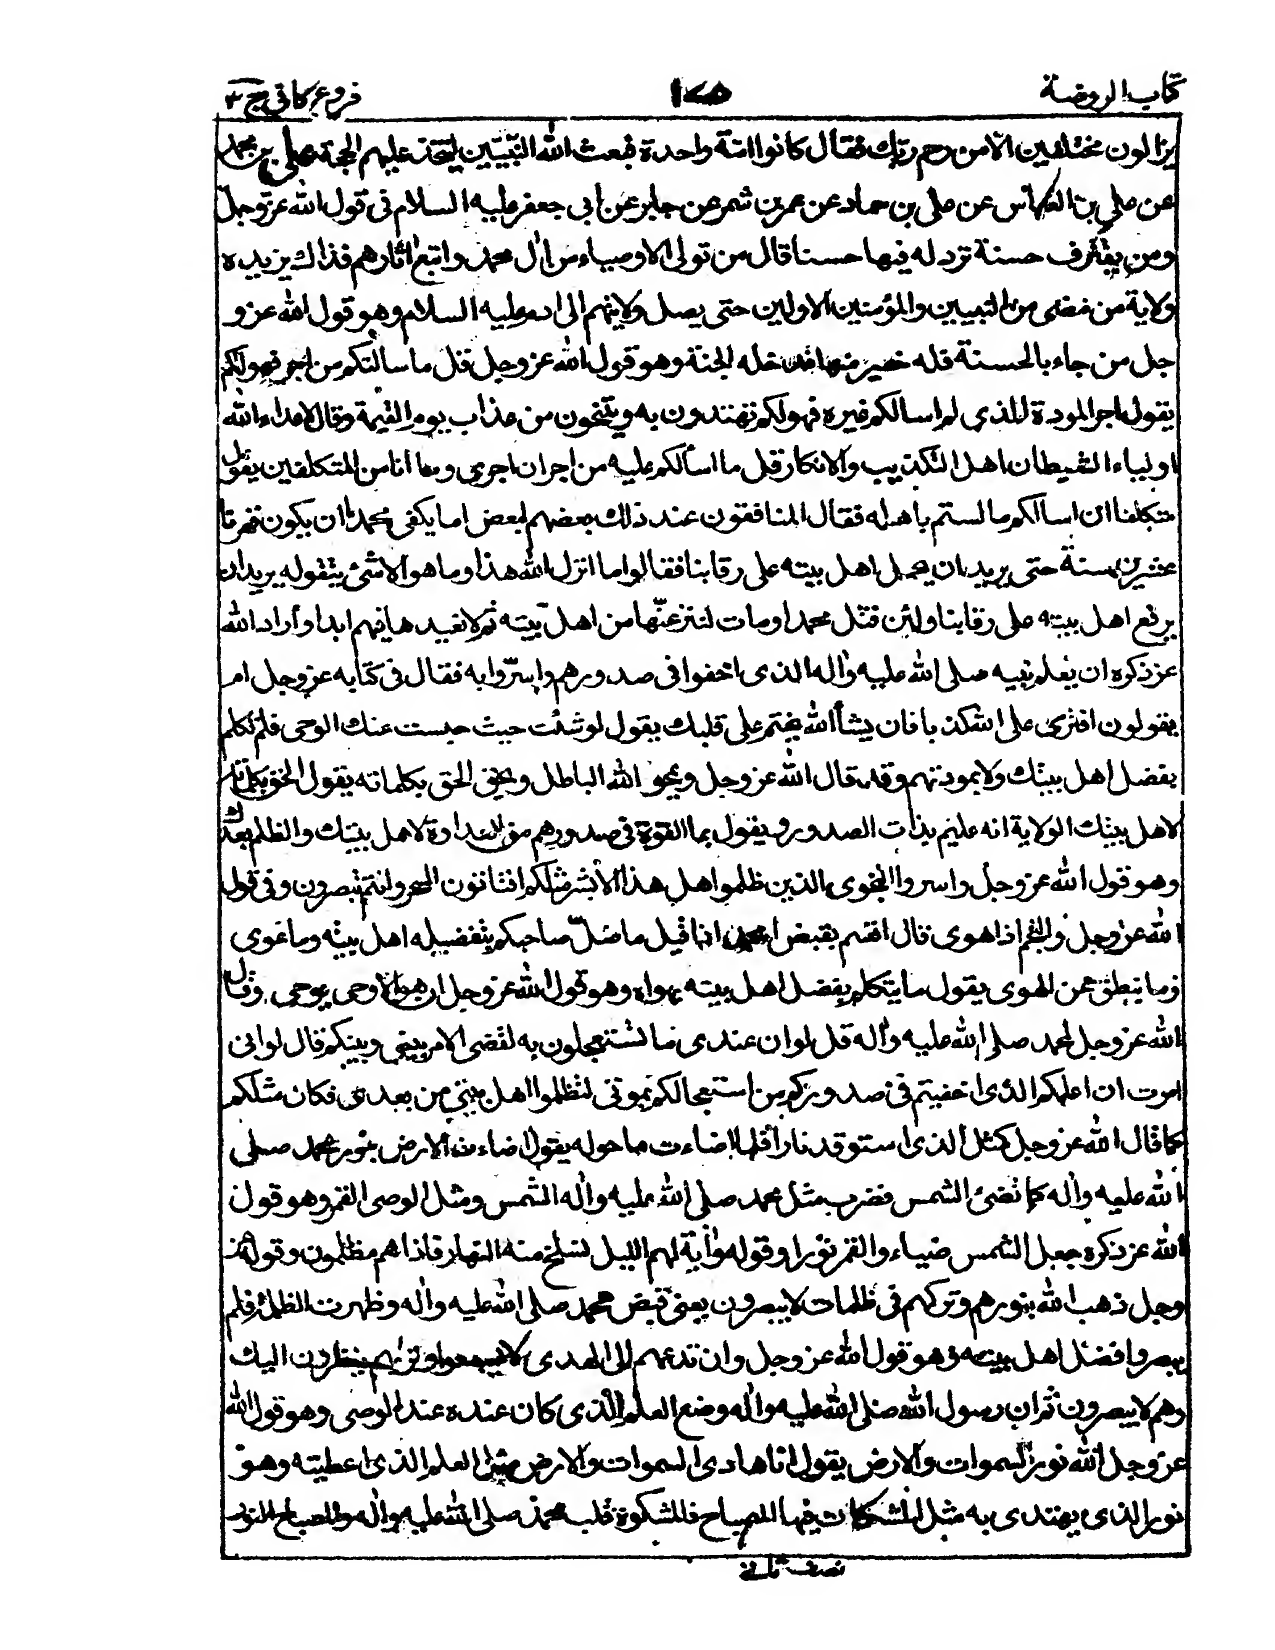 كتاب الروضة
١٧٥
فروع كافي ج ٣
يزالون مختلفين الا من رحم ربك فقال كانوا امة واحدة فبعث الله النبيين ليتخذ عليهم الحجة علي بن محمد
عن علي بن العباس عن علي بن حماد عن عمر بن شمر عن جابر عن ابى جعفر عليه السلام فى قول الله عز وجل
ومن يقترف حسنة نزد له فيها حسنا قال من تولى الاوصياء من ال محمد واتبع اثارهم فذاك يزيده
ولاية من مضى من النبيين والمؤمنين الاولين حتى يصل ولايتهم الى ادم عليه السلام وهو قول الله عز و
جل من جاء بالحسنة فله خير منها يدخله الجنة وهو قول الله عز وجل قل ما سالتكم من اجر فهو لكم
يقول اجر المودة الذي لم اسالكم غيره فهو لكم تهتدون به وتنجون من عذاب يوم القيمة وقال لاعداء الله
اولياء الشيطان اهل التكذيب والانكار قل ما اسألكم عليه من اجر ان اجري وما انا من المتكلفين يقول
متكلفا ان اسالكم ما لستم باهله فقال المنافقون عند ذلك بعضهم لبعض اما يكفى محمدا ان يكون قهرنا
عشرين سنة حتى يريد ان يحمل اهل بيته على رقابنا فقالوا ما انزل الله هذا وما هو الا شئ يتقوله يريد ان
يرفع اهل بيته على رقابنا ولئن قتل محمد او مات لننزعنها من اهل بيته ثم لا نعيدها فيهم ابدا واراد الله
عز ذكره ان يعلم نبيه صلى الله عليه واله الذى اخفوا فى صدورهم واسروا به فقال فى كتابه عز وجل ام
يقولون افترى على الله كذبا فان يشأ الله يختم على قلبك يقول لو شئت حبست عنك الوحى فلم تكلم
بفضل اهل بيتك ولا بمودتهم وقد قال الله عز وجل ويمحو الله الباطل ويحق الحق بكلماته يقول الحق
لاهل بيتك الولاية انه عليم بذات الصدور ويقول بما القوه فى صدورهم من العداوة لاهل بيتك والظلم بعدك
وهو قول الله عز وجل واسروا النجوى الذين ظلموا هل هذا الا بشر مثلكم افتاتون السحر وانتم تبصرون وفى قول
الله عز وجل والنجم اذا هوى قال اقسم بقبض محمد اذا قبض ما ضل صاحبكم بتفضيله اهل بيته وما غوى
وما ينطق عن الهوى يقول ما يتكلم بفضل اهل بيته بهواه وهو قول الله عز وجل ان هو الا وحى يوحى وقال
الله عز وجل لمحمد صلى الله عليه واله قل لو ان عندى ما تستعجلون به لقضى الامر بينى وبينكم قال لو انى
امرت ان اعلمكم الذى اخفيتم فى صدوركم من استعجالكم بموتى لتظلموا اهل بيتى من بعدى فكان مثلكم
كما قال الله عز وجل كمثل الذى استوقد نارا فلما اضاءت ما حوله يقول اضاءت الارض بنور محمد صلى
الله عليه واله كما تضئ الشمس فضرب مثل محمد صلى الله عليه واله الشمس ومثل الوصى القمر وهو قول
الله عز ذكره جعل الشمس ضياء والقمر نورا وقوله واية لهم الليل نسلخ منه النهار فاذا هم مظلمون وقوله عز
وجل ذهب الله بنورهم وتركهم فى ظلمات لا يبصرون يعنى قبض محمد صلى الله عليه واله وظهرت الظلمة فلم
يبصروا فضل اهل بيته وهو قول الله عز وجل وان تدعهم الى الهدى لا يسمعوا وتريهم ينظرون اليك
وهم لا يبصرون ثم ان رسول الله صلى الله عليه واله وضع العلم الذى كان عنده عند الوصى وهو قول الله
عز وجل الله نور السموات والارض يقول انا هادى السموات والارض مثل العلم الذى اعطيته وهو
نور الذى يهتدى به مثل المشكاة فيها المصباح فالمشكوة قلب محمد صلى الله عليه واله والمصباح النور